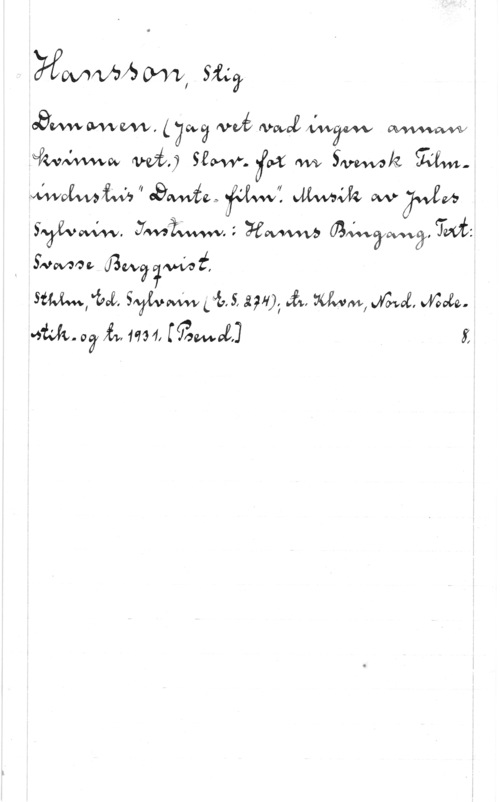 Hansson, Stig
Demonen. (Jag vet vad ingen annan
kvinna vet.) Slow-fox ur Svensk Film-
industris "Dante-film". Musik av Jules
Sylvain. Instrum.: Hanns Bingang. Text:
Svasse Bergqvist.
Sthlm, Ed. Sylvain (E.S. 274); tr. Khvn, Nord. Node-
stik- og tr. 1931. [Pseud.] 8.